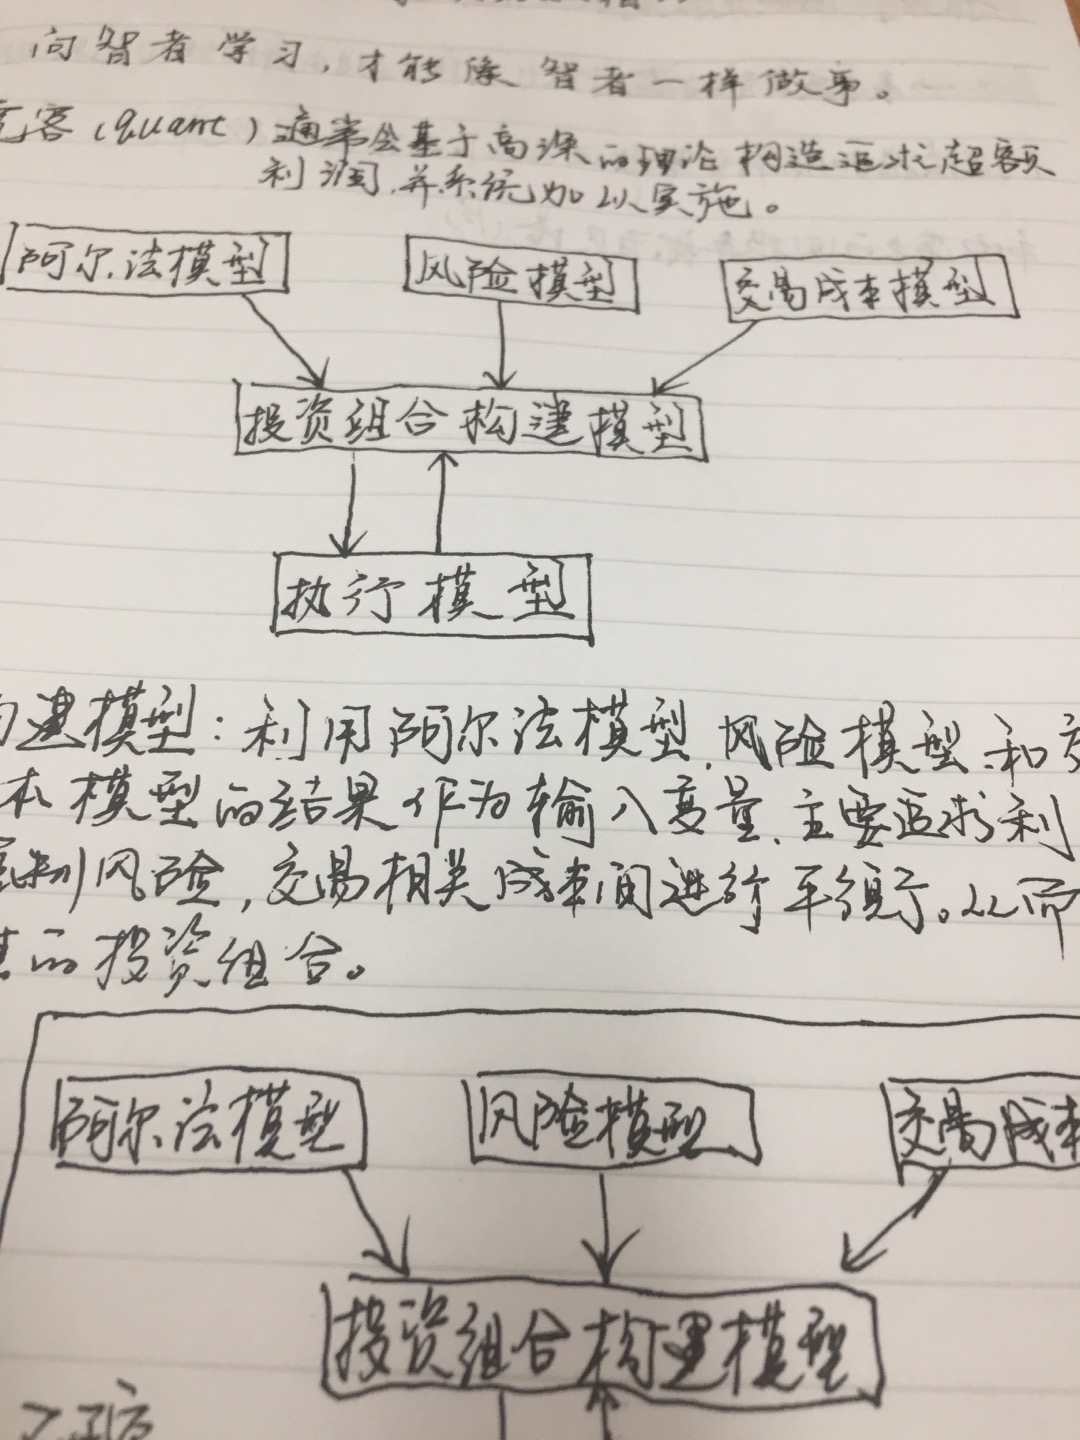 向智者学习，才能像智者一样做事。
客（quant）通常会基于高深的理论构造追求超额
利润，并系统加以实施。
阿尔法模型 风险模型 交易成本模型
投资组合构建模型
执行模型
构建模型：利用阿尔法模型、风险模型、和交
本模型的结果作为输入变量，主要追求利
风险，交易相关成本间进行平衡。从而
的投资组合。
阿尔法模型 风险模型 交易成本
投资组合构建模型